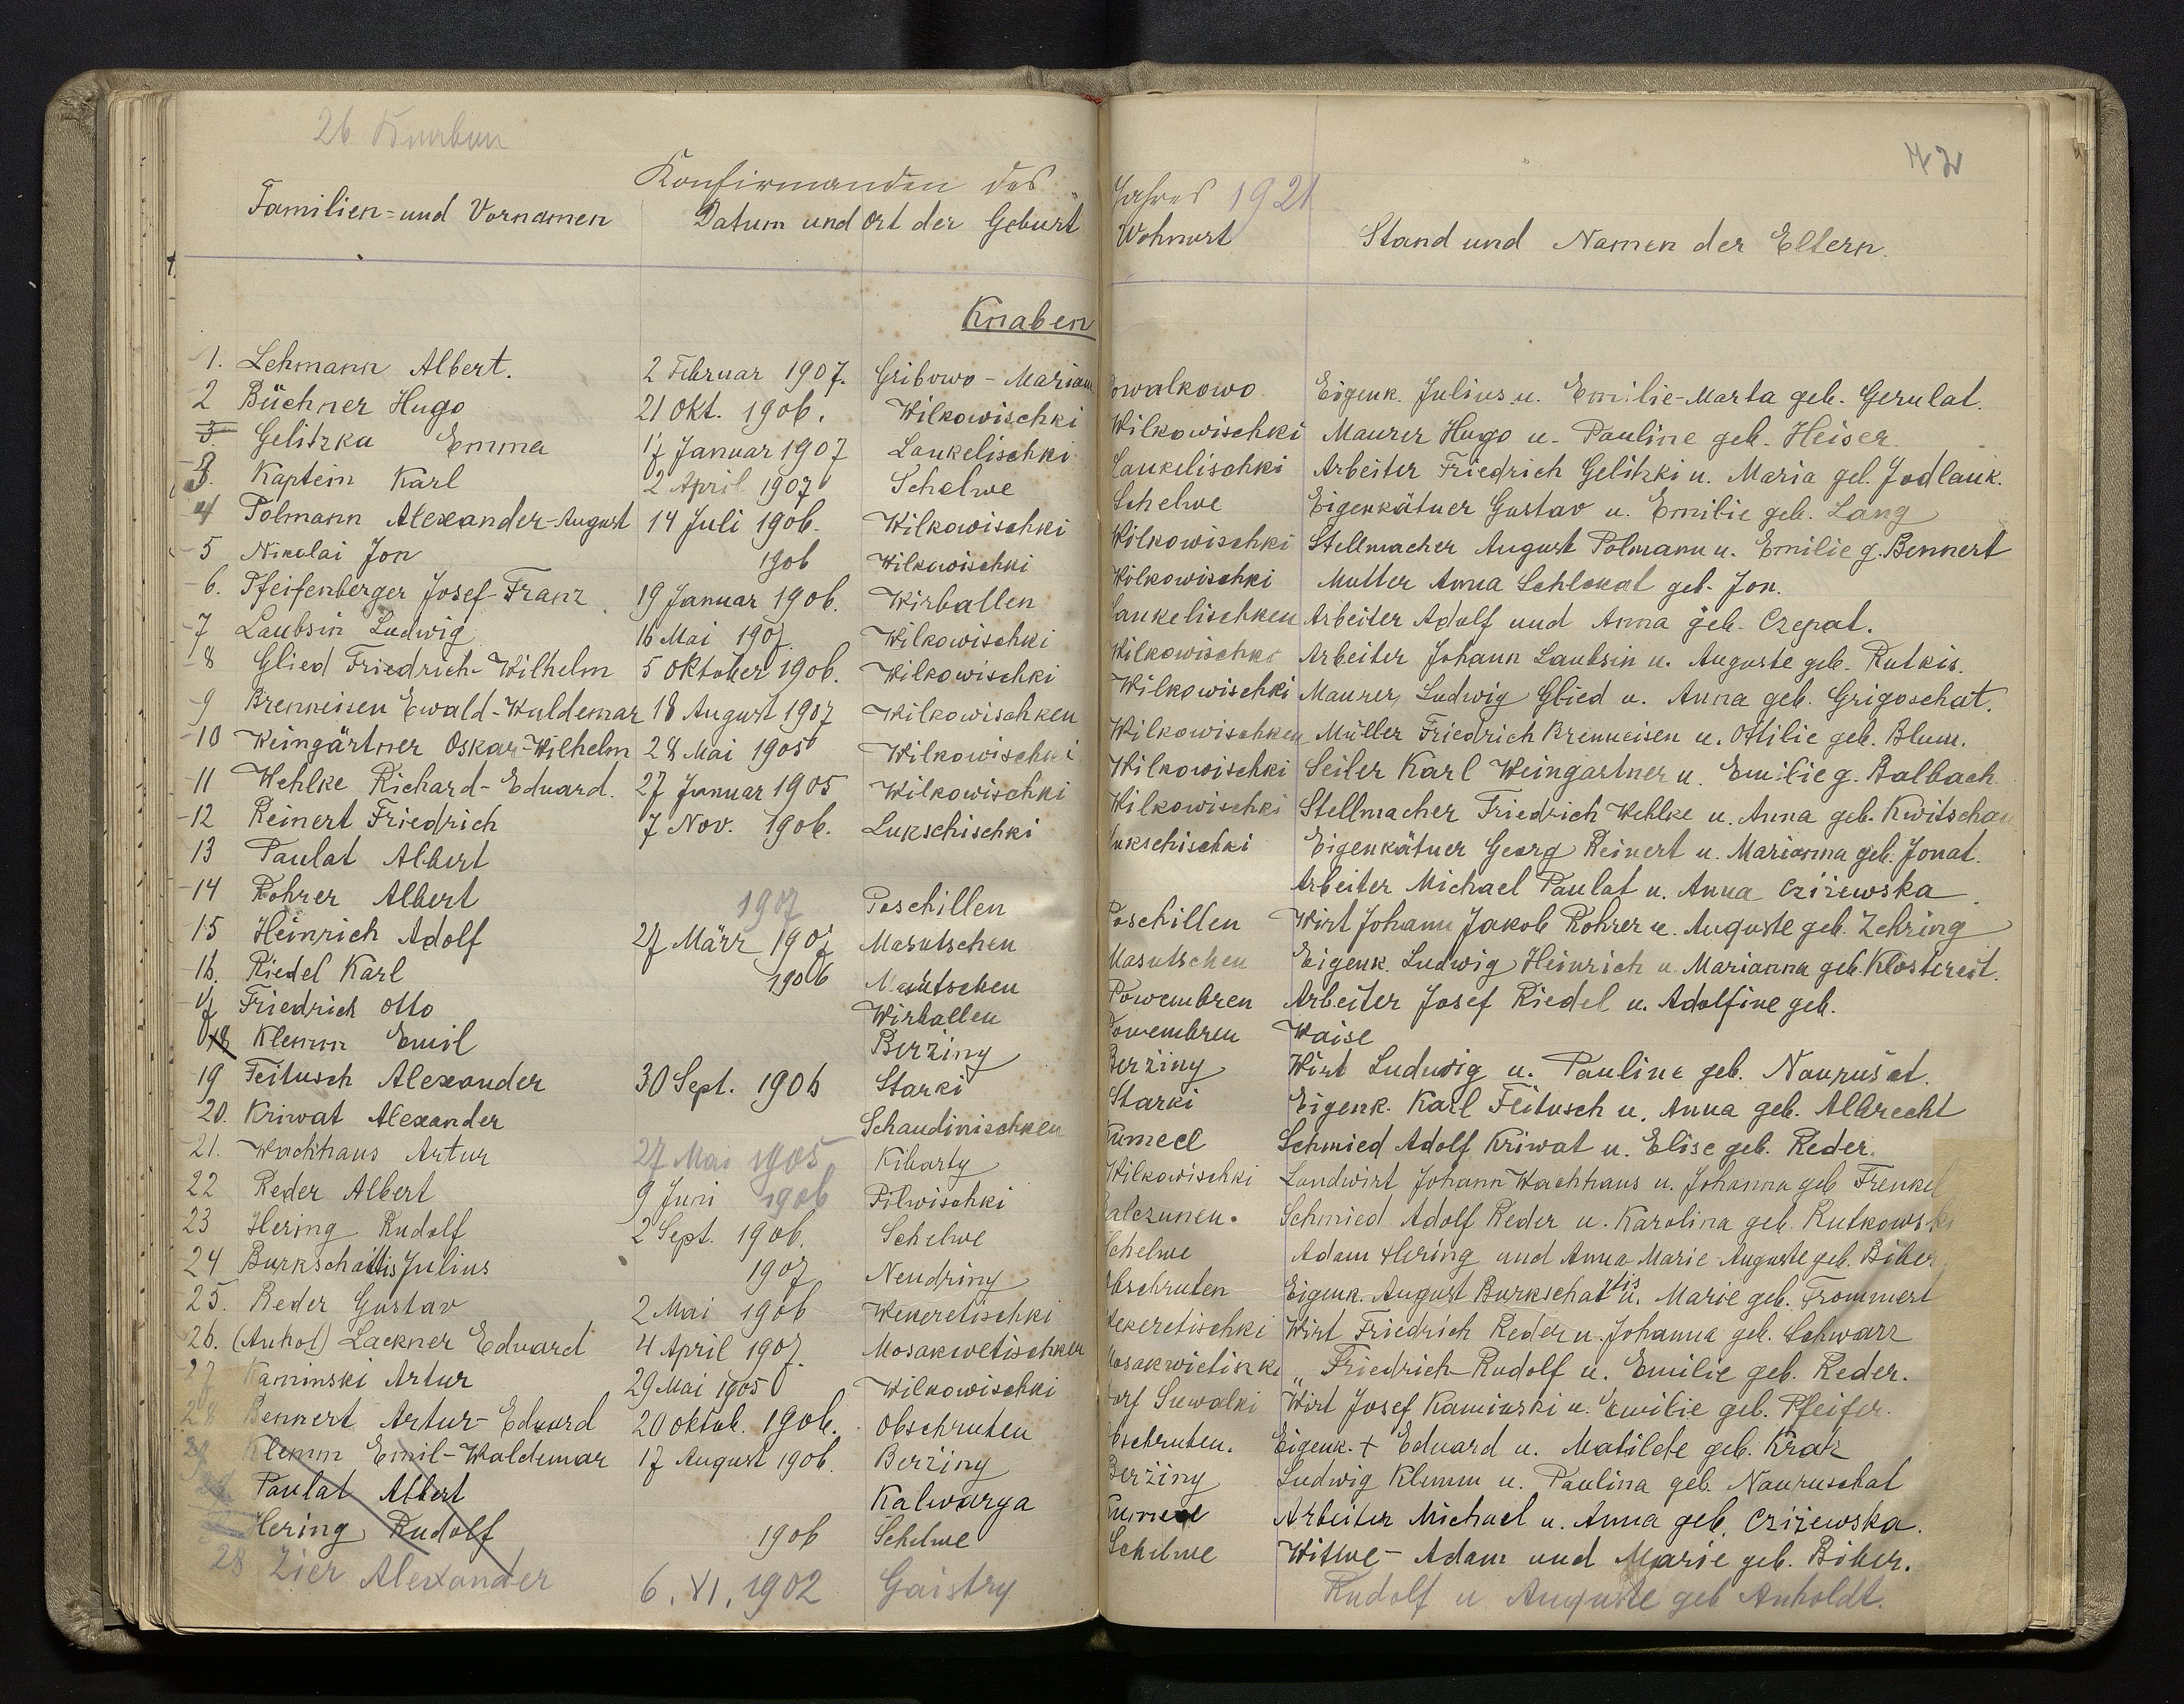 26 Knaben
72
Konfirmanden des Jahres 1921
Familien- und Vornamen Datum und Ort der Geburt Wohnort Stand und Namen der Eltern.
Knaben
1. Lehmann Albert. 2 Februar 1907. Gribowo - Mariam owalkowo Eigenk. Julius u. Emilie-Marta geb. Gerulat.
2 Büchner Hugo 21 Okt. 1906. Wilkowischki Wilkowischki Maurer Hugo u. Pauline geb. Heiser
3. Gelitzka Emma 17 Januar 1907 Laukelischki Laukelischki Arbeiter Friedrich Gelitzki u. Maria geb. Jodlauk.
3. Kaptein Karl 2 April 1907 Schelwe Schelwe Eigenkätner Gustav u. Emilie geb. Lang
4 Polmann Alexander-August 14 Juli 1906. Wilkowischki Wilkowischki Stellmacher August Polmann u. Emilie g. Bennert
5 Nikolai Jon 1906 Wilkowischki Wilkowischki Mutter Anna Schlokat geb. Jon.
6. Pfeifenberger Josef-Franz 19 Januar 1906. Wirballen Laukelischken Arbeiter Adolf und Anna geb. Czepat.
7 Laubsin Ludwig 16 Mai 1907. Wilkowischki Wilkowischki Arbeiter Johann Laubsin u. Auguste geb. Rutkis.
8 Glied Friedrich-Wilhelm 5 Oktober 1906. Wilkowischki Wilkowischki Maurer Ludwig Glied u. Anna geb. Grigoschat.
9 Brenneisen Ewald-Waldemar 18 August 1907 Wilkowischken Wilkowischken Müller Friedrich Brenneisen u. Ottilie geb. Blum.
10 Weingärtner Oskar-Wilhelm 28 Mai 1905 Wilkowischki Wilkowischki Seiler Karl Weingartner u. Emilie g. Balbach
11 Wehlke Richard-Eduard. 27 Januar 1905 Wilkowischki Wilkowischki Stellmacher Friedrich Wehlke u. Anna geb. Kwitschau
12 Reinert Friedrich 7 Nov. 1906. Lukschischki Lukschischki Eigenkätner Georg Reinert u. Marianna geb. Jonat.
13 Paulat Albert Arbeiter Michael Paulat u. Anna Cziżewska
14 Rohrer Albert 1907 Poschillen Poschillen Wirt Johann Jakob Rohrer u. Auguste geb. Zehring
15 Heinrich Adolf 27 März 1907 Masutschen Masutschen Eigenk. Ludwig Heinrich u. Marianna geb. Klostereit.
16. Riedel Karl 1906 Masutschen Powembren Arbeiter Josef Riedel u. Adolfine geb.
17 Friedrich Otto Wirballen Powembren Waise
18 Klemm Emil Berżiny Berżiny Wirt Ludwig u. Pauline geb. Naurusat.
19 Feitusch Alexander 30 Sept. 1906 Starki Starki Eigenk. Karl Feitusch u. Anna geb. Albrecht
20. Kriwat Alexander Schaudinischken Kumecl Schmied Adolf Kriwat u. Elise geb. Reder.
21. Wachhaus Artur 27 Mai 1905 Kibarty Wilkowischki Landwirt Johann Wachhaus u. Johanna geb Frenkel
22 Reder Albert 9 Juni 1906 Pilwischki alczunen. Schmied Adolf Reder u. Karolina geb. Rutkowski
23 Hering Rudolf 2 Sept. 1906. Schelwe Schelwe Adam Hering und Anna Marie-Auguste geb. Biber
24 Burkschaitis Julius 1907 Neudriny Obschruten Eigenk. August Burkschat atis u. Marie geb. Frommert
25. Reder Gustav 2 Mai 1906 Wekeretischki Wekeretischki Wirt Friedrich Reder u. Johanna geb. Schwarz
26. (Anhol) Lackner Eduard 4 April 1907. Mosakwetischken Mosakwietischki " Friedrich Rudolf u. Emilie geb. Reder.
27 Kaminski Artur 29 Mai 1905 Wilkowischki orf Suwalki Wirt Josef Kaminski u. Emilie geb. Pfeifer.
28 Bennert Artur-Eduard 20 Oktob. 1906. Obschruten Obschruten. Eigenk. + Eduard u. Matilde geb. Krak
29 Klemm Emil-Waldemar 17 August 1906. Berżiny Berżiny Ludwig Klemm u. Paulina geb. Nauruschat
Paulat Albert Kalwarya Kumecl Arbeiter Michael u. Anna geb. Cziżewska.
Hering Rudolf 1906 Schelwe Schelwe Witwe - Adam und Marie geb. Biber.
28 Zier Alexander 6. XI. 1902 Gaistry Rudolf u Auguste geb Anholdt.